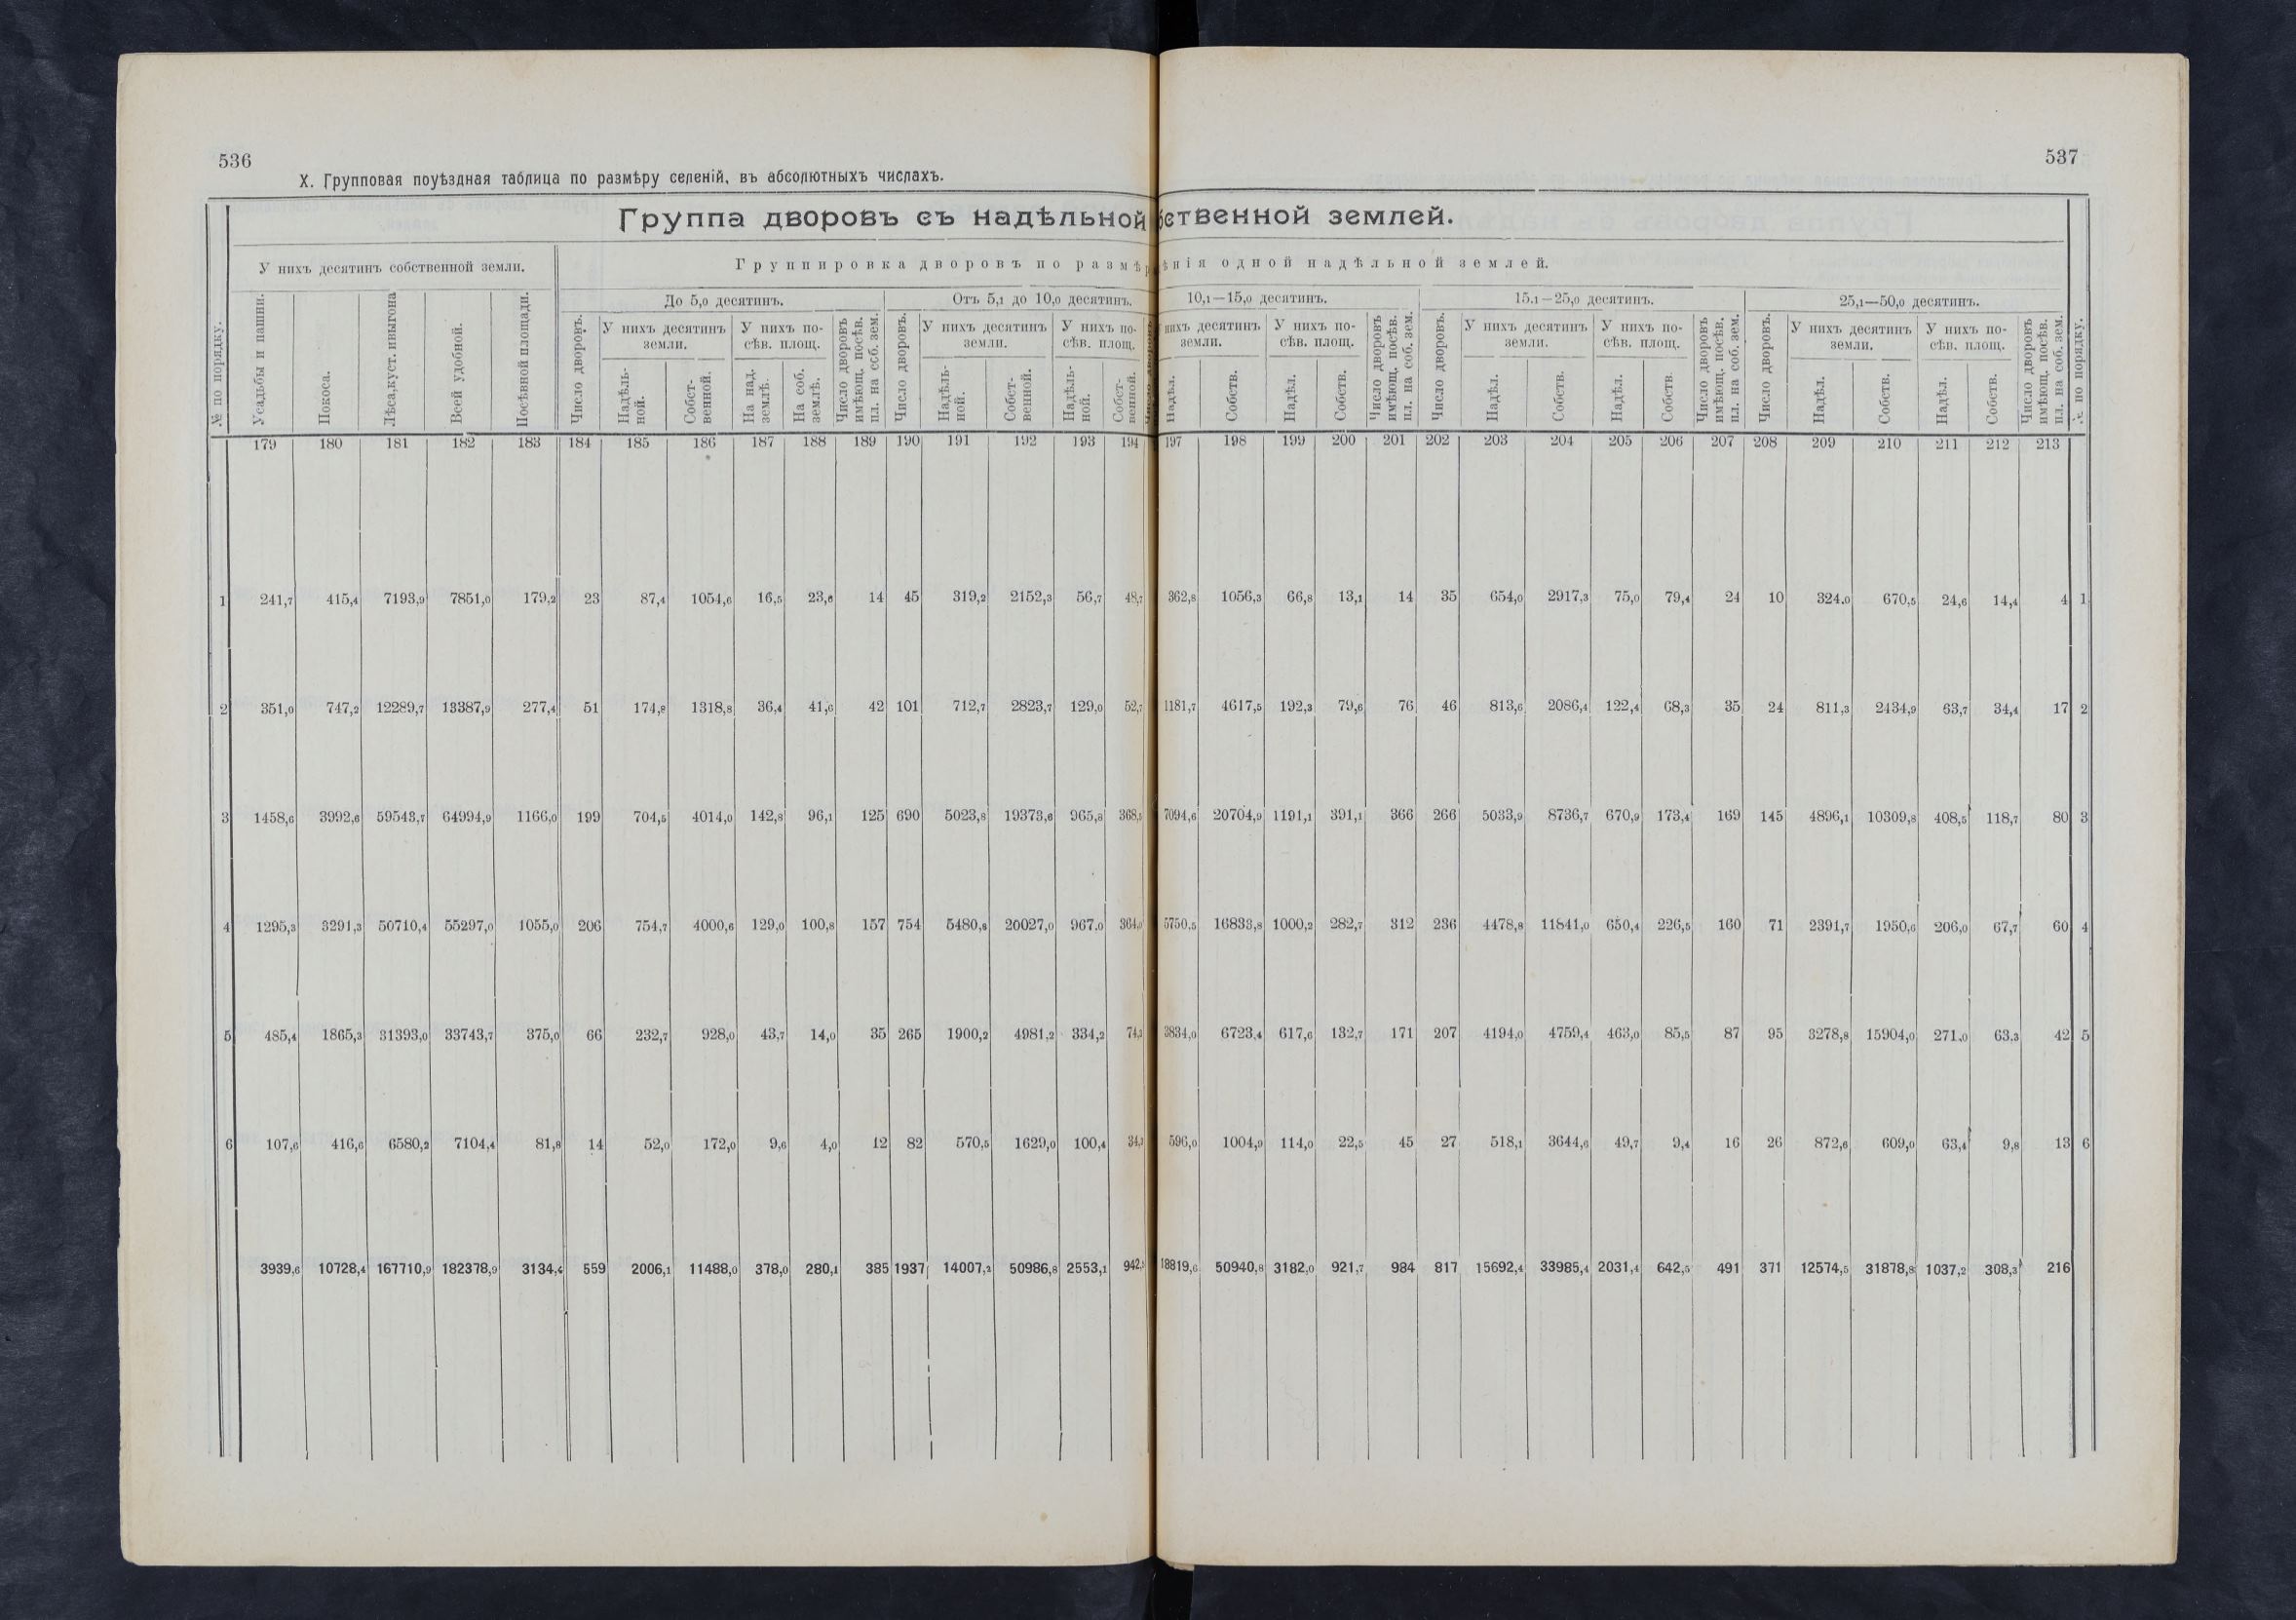 536
537
X. Групповая поуѣздная таблица по размѣру селеній, въ абсолютныхъ числахъ.
Группа дворовъ съ надѣльной бственной землей.
У нихъ десятинъ собственной земли.
Группировка дворовъ по размѣ нія одной надѣльной землей.
До 5,0 десятинъ. Отъ 5,1 до 10,0 десятинъ. 10,1—15,0 десятинъ. 15,1—25,0 десятинъ. 25,1—50,0 десятинъ.
№ по порядку. Усадьбы и пашни. Покоса. Лѣса, куст. и выгона Всей удобной. Посѣвной площади.
Число дворовъ. У нихъ десятинъ земли. Надѣльной. Собственной. У нихъ посѣв. площ. На над. землѣ. На соб. землѣ. Число дворовъ имѣющ. посѣв. пл. на соб. зем.
Число дворовъ. У нихъ десятинъ земли. Надѣльной. Собственной. У нихъ посѣв. площ. Надѣльной. Собственной.
нихъ десятинъ земли. Надѣл. Собств. У нихъ посѣв. площ. Надѣл. Собств. Число дворовъ имѣющ. посѣв. пл. на соб. зем.
Число дворовъ. У нихъ десятинъ земли. Надѣл. Собств. У нихъ посѣв. площ. Надѣл. Собств. Число дворовъ имѣющ. посѣв. пл. на соб. зем.
Число дворовъ. У нихъ десятинъ земли. Надѣл. Собств. У нихъ посѣв. площ. Надѣл. Собств. Число дворовъ имѣющ. посѣв. пл. на соб. зем. № по порядку.
179 180 181 182 183 184 185 186 187 188 189 190 191 192 193 194 197 198 199 200 201 202 203 204 205 206 207 208 209 210 211 212 213
1 241,7 415,4 7193,9 7851,0 179,2 23 87,4 1054,6 16,5 23,6 14 45 319,2 2152,3 56,7 48,7 362,8 1056,3 66,8 13,1 14 35 654,0 2917,3 75,0 79,4 24 10 324,0 670,5 24,6 14,4 4 1
2 351,0 747,2 12289,7 13387,9 277,4 51 174,8 1318,8 36,4 41,6 42 101 712,7 2823,7 129,0 52,7 1181,7 4617,5 192,3 79,6 76 46 813,6 2086,4 122,4 68,3 35 24 811,3 2434,9 63,7 34,4 17 2
3 1458,6 3992,6 59543,7 64994,9 1166,0 199 704,5 4014,0 142,8 96,1 125 690 5023,8 19373,6 965,8 368,5 7094,6 20704,9 1191,1 391,1 366 266 5033,9 8736,7 670,9 173,4 169 145 4896,1 10309,8 408,5 118,7 80 3
4 1295,3 3291,3 50710,4 55297,0 1055,0 206 754,7 4000,6 129,0 100,8 157 754 5480,8 20027,0 967,0 364,0 5750,5 16833,8 1000,2 282,7 312 236 4478,8 11841,0 650,4 226,5 160 71 2391,7 1950,6 206,0 67,7 60 4
5 485,4 1865,3 31393,0 33743,7 375,0 66 232,7 928,0 43,7 14,0 35 265 1900,2 4981,2 334,2 74,3 3834,0 6723,4 617,6 132,7 171 207 4194,0 4759,4 463,0 85,5 87 95 3278,8 15904,0 271,0 63,3 42 5
6 107,6 416,6 6580,2 7104,4 81,8 14 52,0 172,0 9,6 4,0 12 82 570,5 1629,0 100,4 596,0 1004,9 114,0 22,5 45 27 518,1 3644,6 49,7 9,4 16 26 872,6 609,0 63,4 9,8 13 6
3939,6 10728,4 167710,9 182378,9 3134,4 559 2006,1 11488,0 378,0 280,1 385 1937 14007,2 50986,8 2553,1 18819,6 50940,8 3182,0 921,7 984 817 15692,4 33985,4 2031,4 642,5 491 371 12574,5 31878,8 1037,2 308,3 216